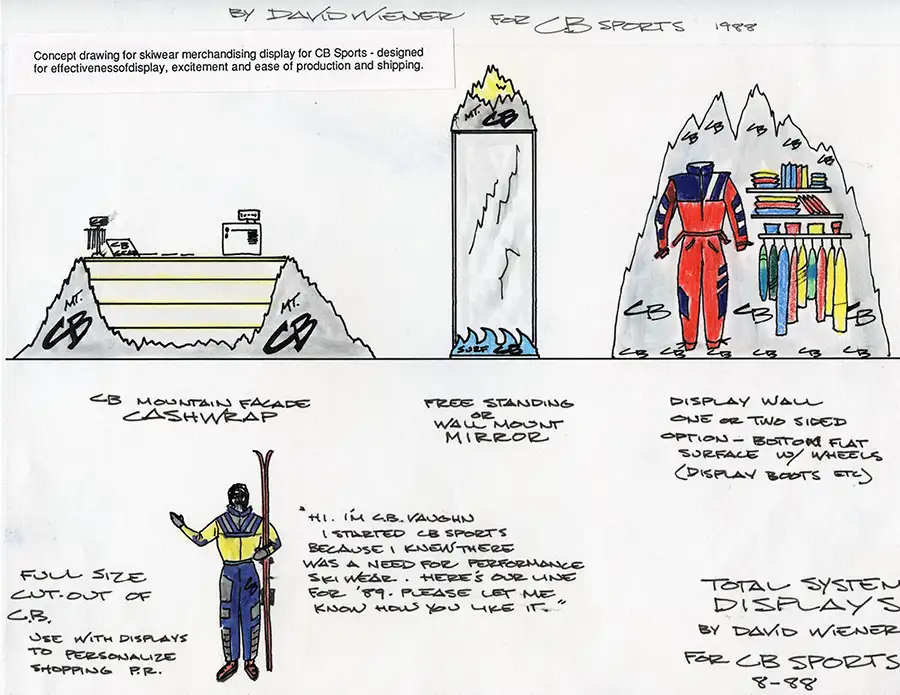 BY DAVID WIENER FOR CB SPORTS 1988
Concept drawing for skiwear merchandising display for CB Sports - designed
for effectivenessofdisplay, excitement and ease of production and shipping.
MT.
CB
CB
CB
GEAR
MT.
CB
MT.
CB
SURF CB
CB
CB
CB
CB
CB
CB
CB
CB
CB
CB
CB
CB
CB
CB
CB MOUNTAIN FACADE
CASHWRAP
FREE STANDING
OR
WALL MOUNT
MIRROR
DISPLAY WALL
ONE OR TWO SIDED
OPTION - BOTTOM FLAT
SURFACE W/ WHEELS
(DISPLAY BOOTS ETC)
FULL SIZE
CUT-OUT OF
C.B.
USE WITH DISPLAYS
TO PERSONALIZE
SHOPPING P.R.
CB
"HI. I'M C.B. VAUGHN
I STARTED CB SPORTS
BECAUSE I KNEW THERE
WAS A NEED FOR PERFORMANCE
SKI WEAR. HERE'S OUR LINE
FOR '89. PLEASE LET ME
KNOW HOW YOU LIKE IT."
TOTAL SYSTEM
DISPLAYS
BY DAVID WIENER
FOR CB SPORTS
8-88